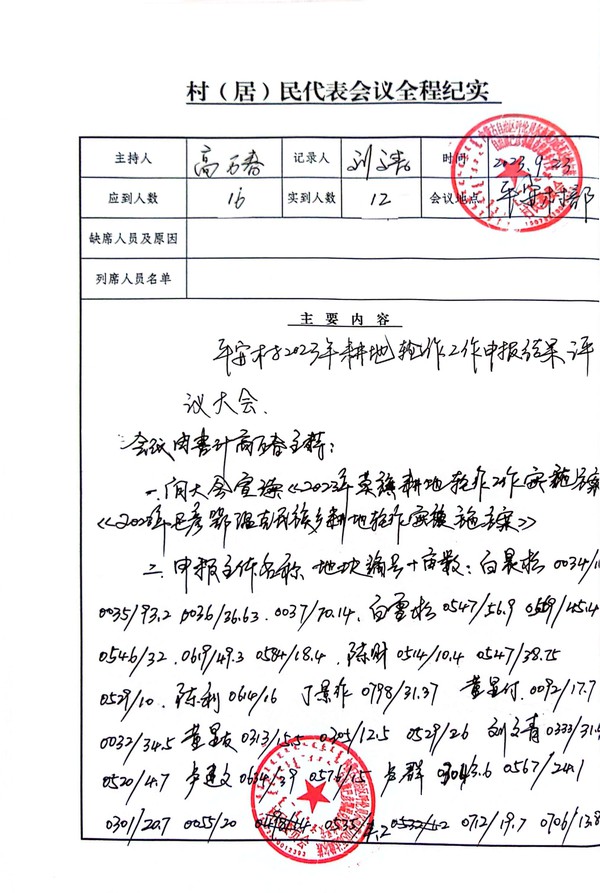 村（居）民代表会议全程纪实
主持人 高万春 记录人 刘文青 时间 2023.9.23
应到人数 16 实到人数 12 会议地点 平安村部
缺席人员及原因
列席人员名单
主 要 内 容
平安村2023年耕地轮作工作申报结果评
议大会.
会议由书计高万春主持：
一.向大会宣读《2023年莫旗耕地轮作工作实施方案
《2023年巴彦鄂温克民族乡耕地轮作实施方案》
二、申报主体名称、地块编号+亩数：白晨松 0034/1
0035/93.2 0036/36.63. 0037/70.14. 白雪松 0547/56.9 /45.4
0546/32 . 0619/49.3 0584/18.4 . 陈财 0514/10.4 0547/38.75
0529/10. 陈利 0614/16 丁景作 0798/31.37 董显付. 0092/17.7
0032/34.5 董显友 0313/15.5 0305/12.5 0529/26 刘文青 0333/31.
0520/4.7 卢建文 0634/39 0576/15 卢群 /3.6 0567/24.1
0301/20.7 0055/20 0535 0532/ 0712/19.7 0706/13.8